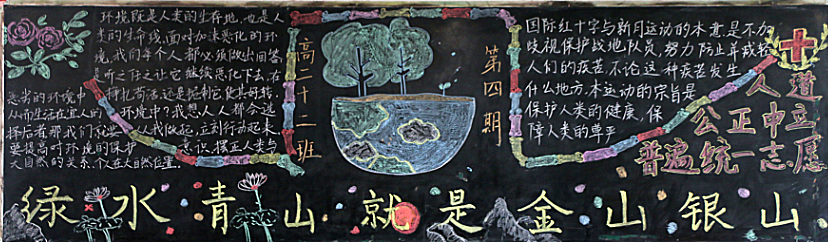 环境既是人类的生存地,也是人
类的生命线,面对加速恶化的环
境,我们每个人都必须做出回答,
是听之任之让它继续恶化下去,在
恶劣的环境中挣扎苟活,还是扼制它,使其好转,
从而生活在宜人的环境中?我想,人人都会选
择后者,那我们就要从我做起,立刻行动起来
要提高对环境的保护意识,摆正人类与
大自然的关系,个人在大自然
高二十二班
第四期
国际红十字与新月运动的本意是不加
歧视保护战地队员,努力防止并减轻
人们的疾苦,不论这种疾苦发生
什么地方,本运动的宗旨是
保护人类的健康,保
障人类的尊严
人道
公正中立
普遍统一志愿
绿水青山就是金山银山